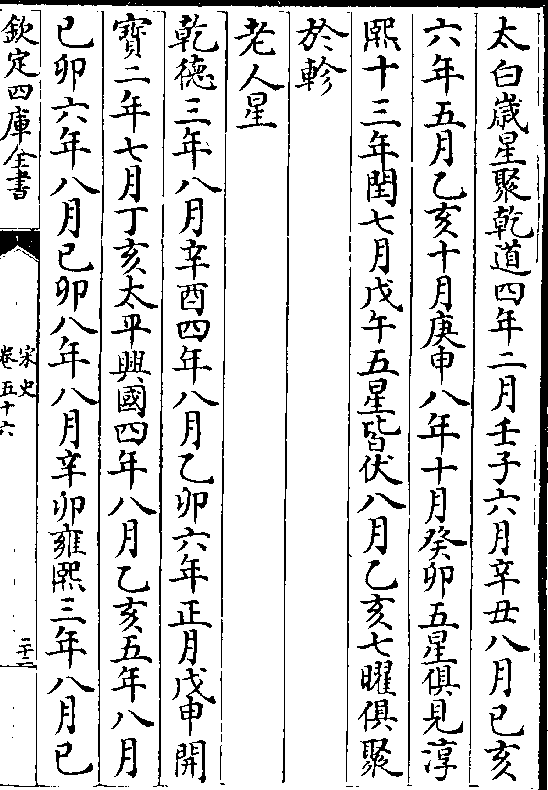 太白歳星聚乾道四年二月壬子六月辛丑八月已亥
六年五月乙亥十月庚申八年十月癸卯五星俱見淳
熙十三年閏七月戊午五星皆伏八月乙亥七曜俱聚
於軫
老人星
乾德三年八月辛酉四年八月乙卯六年正月戊申開
寶二年七月丁亥太平興國四年八月乙亥五年八月
已卯六年八月已卯八年八月辛卯雍熙三年八月已
欽定四庫全書
宋史
卷五十六
二十二